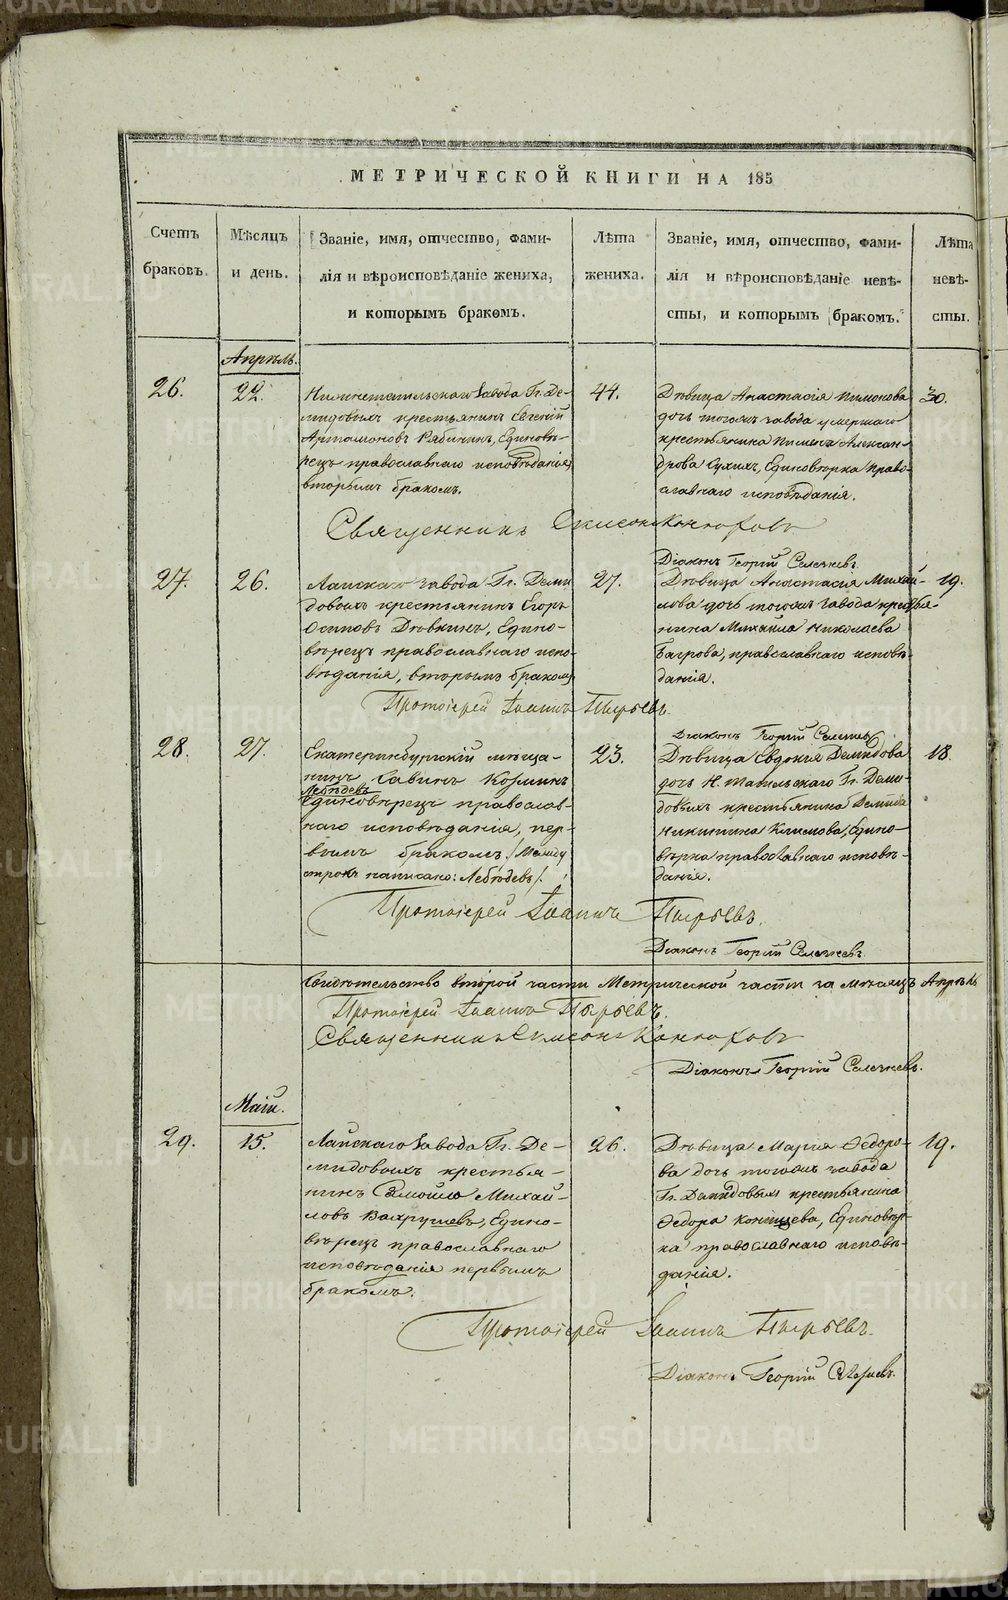 МЕТРИЧЕСКОЙ КНИГИ НА 185
Счетъ браковъ.
Мѣсяцъ и день.
Званіе, имя, отчество, фами-
лія и вѣроисповѣданіе жениха,
и которымъ бракомъ.
Лѣта жениха.
Званіе, имя, отчество, фами-
лія и вѣроисповѣданіе невѣ-
сты, и которымъ бракомъ.
Лѣта невѣ-
сты.
Апрѣль.
26.
22.
Нижнетагильскаго завода Гг. Де-
мидовыхъ крестьянинъ Евгеній
Артамоновъ Рябининъ, Единовѣ-
рецъ православнаго исповѣданія,
вторымъ бракомъ.
44.
Дѣвица Анастасія Пимонова
дочь тогожъ завода умершаго
крестьянина Пимена Алексан-
дрова Сухихъ, Единовѣрка Право-
славнаго исповѣданія.
30.
Священникъ Симеонъ Конюховъ
Діаконъ Георгій Селезневъ.
27.
26.
Лайскаго завода Гг. Деми
довыхъ крестьянинъ Егоръ
Осиповъ Дѣвкинъ, Едино-
вѣрецъ православнаго испо-
вѣданія, вторымъ бракомъ
27.
Дѣвица Анастасія Михай-
лова дочь тогожъ завода крестья-
нина Михайла Николаева
Багрова, православнаго исповѣ-
данія.
19.
Протоіерей Іоаннъ Пырьевъ.
Діаконъ Георгій Селезневъ
28.
27.
Екатеринбургскій мѣща-
нинъ Савинъ Козминъ
Лебѣдевъ
Единовѣрецъ православ-
наго исповѣданія, пер-
вымъ бракомъ. /Между
строкъ написано: Лебѣдевъ/.
23.
Дѣвица Евдокія Демидова
дочь Н. Тагильскаго Гг. Деми-
довыхъ крестьянина Демида
Никитина Климова, Едино-
вѣрка православнаго исповѣ-
данія.
18.
Протоіерей Іоаннъ Пырьевъ.
Діаконъ Георгій Селезневъ.
Свидѣтельство второй части Метрической части за мѣсяцъ Апрѣль
Протоіерей Іоаннъ Пырьевъ.
Священникъ Симеонъ Конюховъ
Діаконъ Георгій Селезневъ.
Маій.
29.
15.
Лайскаго завода Гг. Де-
мидовыхъ крестья-
нинъ Самойло Михай-
ловъ Вахрушевъ, Едино-
вѣрецъ православнаго
исповѣданія первымъ
бракомъ.
26.
Дѣвица Марія Ѳедоро-
ва дочь тогожъ завода
Гг. Демидовыхъ крестьянина
Ѳедора Конищева, Единовѣр-
ка православнаго исповѣ-
данія.
19.
Протоіерей Іоаннъ Пырьевъ.
Діаконъ Георгій Селезневъ.
METRIKI.GASO-URAL.RU